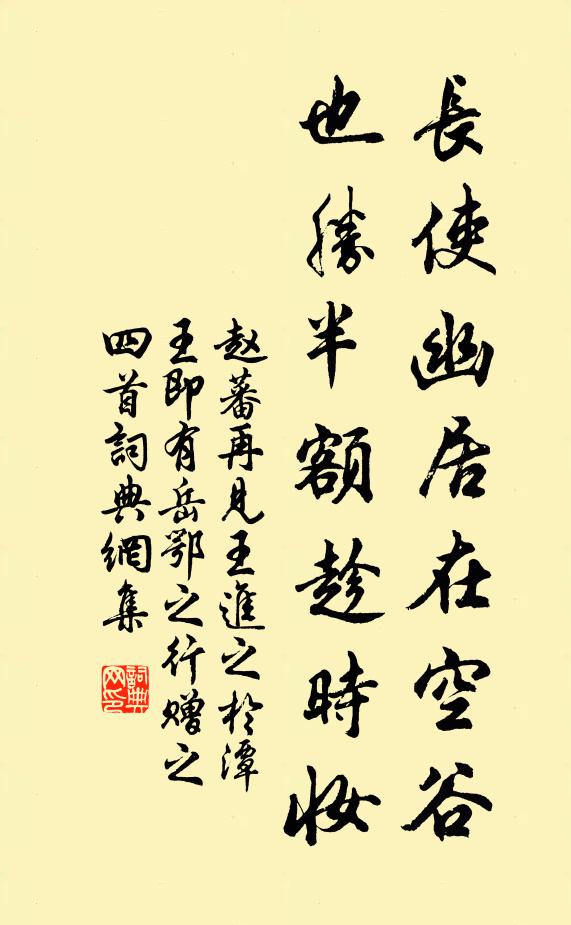 長使幽居在空谷
也勝半額趁時妝
赵蕃再見王進之於潭
王即有岳鄂之行赠之
四首詞典網集
詞典
网印